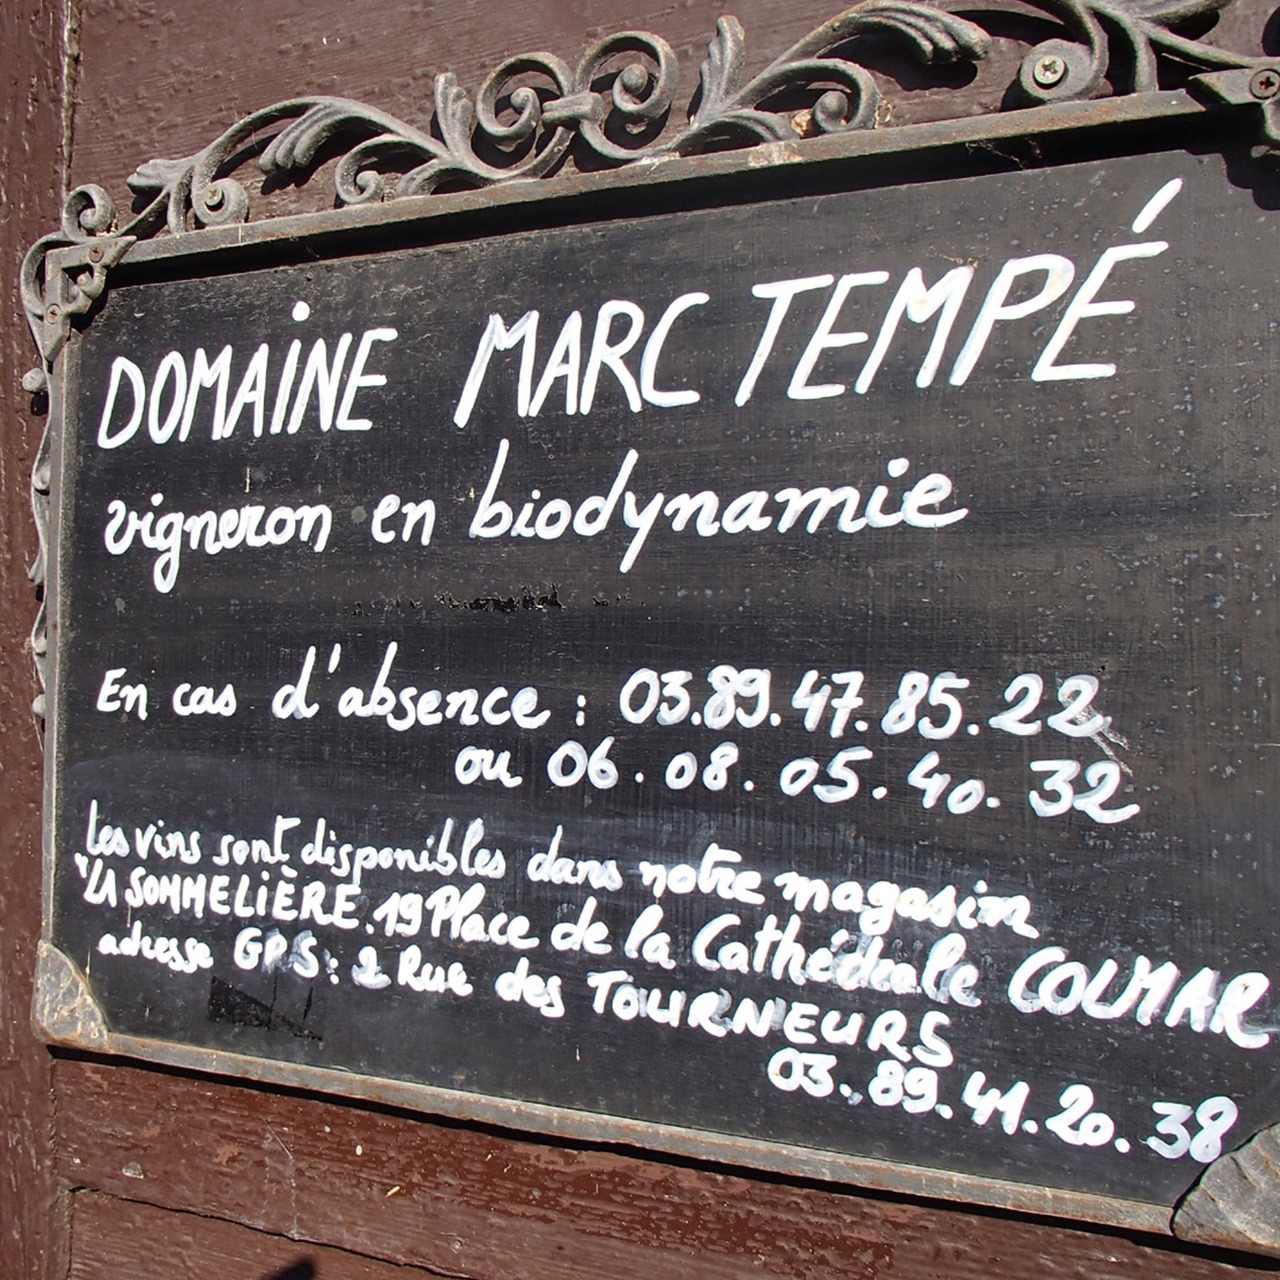 DOMAINE MARC TEMPÉ
vigneron en biodynamie
En cas d'absence : 03.89.47.85.22
ou 06.08.05.40.32
Les vins sont disponibles dans notre magasin
"LA SOMMELIÈRE. 19 Place de la Cathédrale COLMAR
adresse GPS : 2 Rue des TOURNEURS
03.89.41.20.38